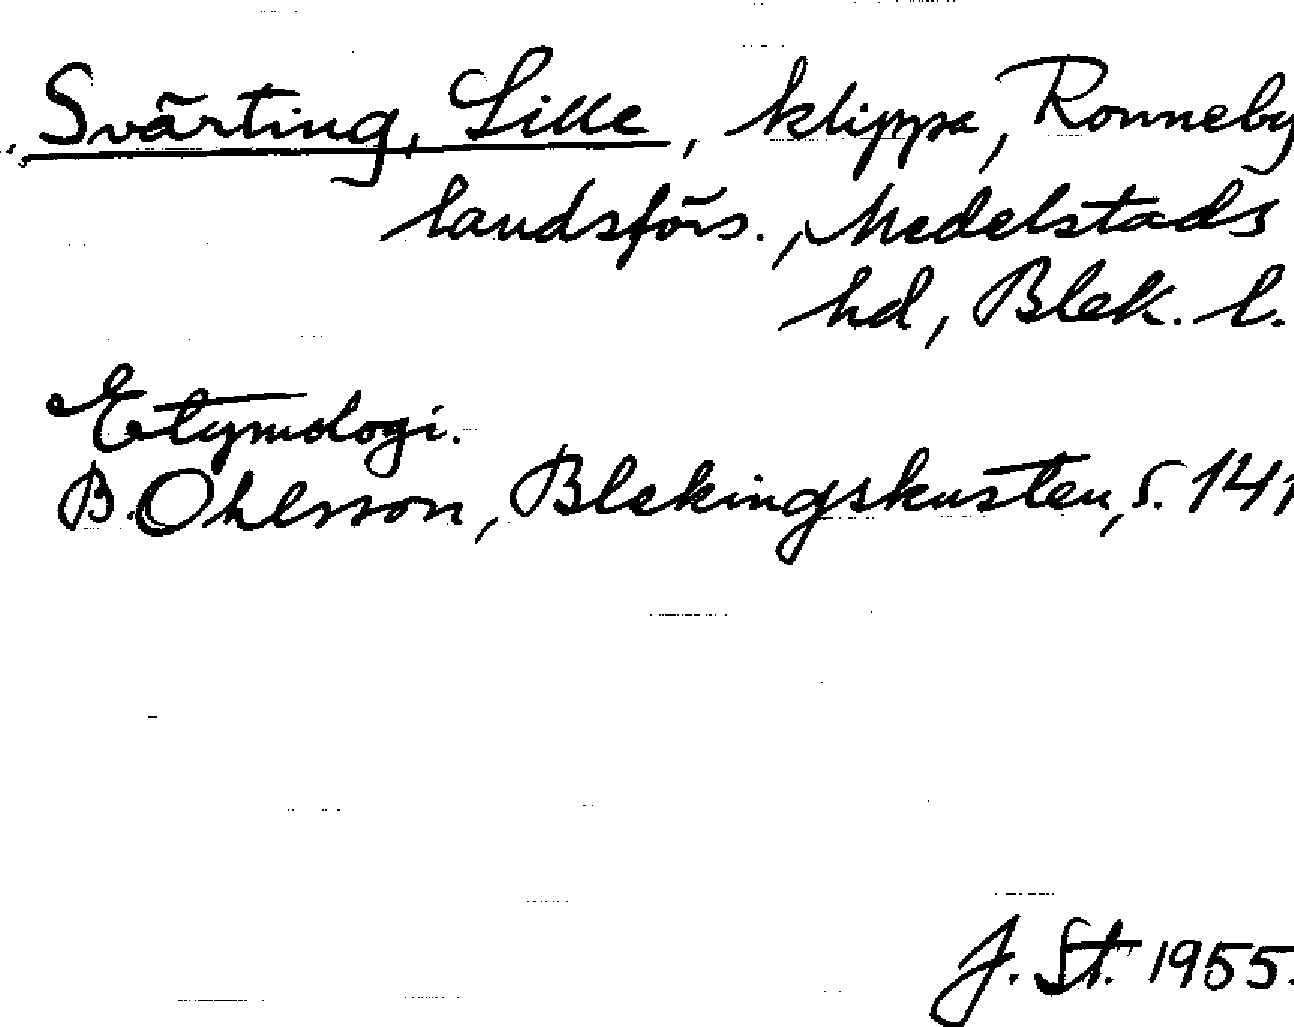 Svärting, Lille, klippa, Ronneby
landsförs., Medelstads
hd, Blek. l.
Etymologi.
B. Ohlsson, Blekingskusten, s. 141
J. St. 1955.